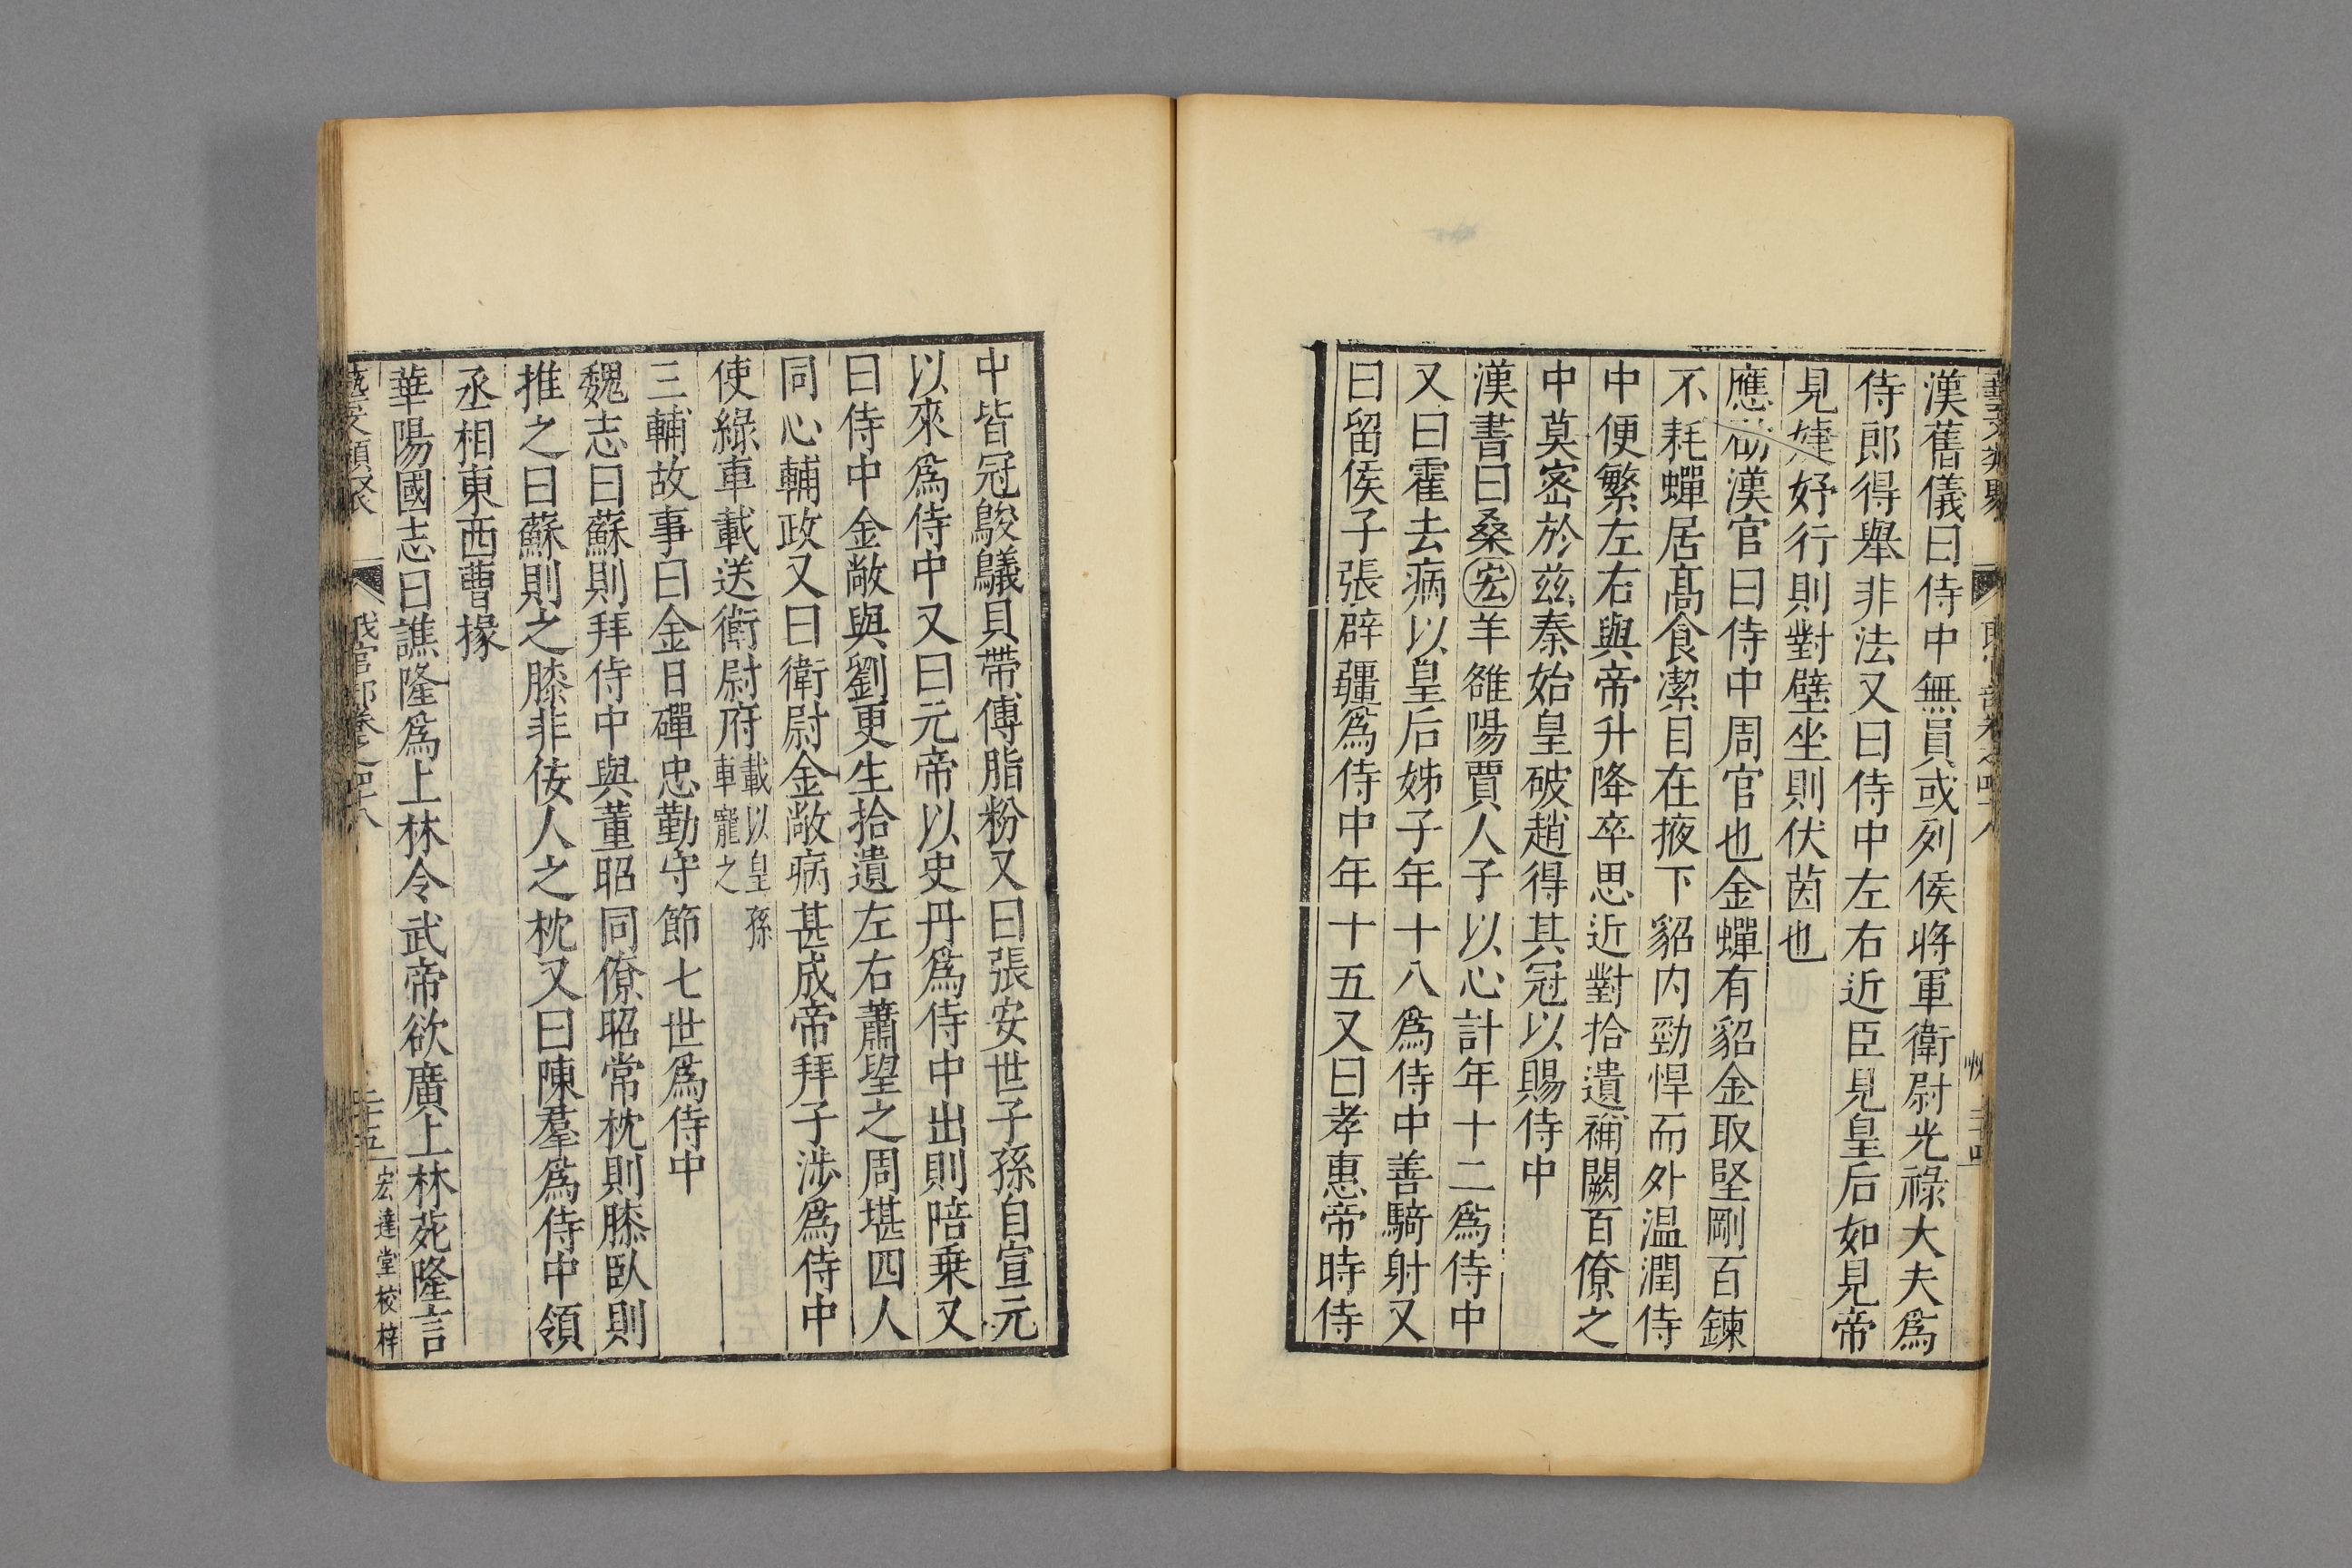 漢舊儀曰侍中無員或列侯將軍衛尉光祿大夫爲
侍郎得舉非法又曰侍中左右近臣見皇后如見帝
見婕妤行則對壁坐則伏茵也
應劭漢官曰侍中周官也金蟬有貂金取堅剛百鍊
不耗蟬居高食潔目在掖下貂内勁悍而外温潤侍
中便繁左右與帝升降卒思近對拾遺補闕百僚之
中莫密於兹秦始皇破趙得其冠以賜侍中
漢書曰桑宏羊雒陽賈人子以心計年十二爲侍中
又曰霍去病以皇后姊子年十八爲侍中善騎射又
曰留侯子張辟疆爲侍中年十五又曰孝惠帝時侍
中皆冠鵔鸃貝帶傅脂粉又曰張安世子孫自宣元
以來爲侍中又曰元帝以史丹爲侍中出則陪乗又
曰侍中金敞與劉更生拾遺左右蕭望之周堪四人
同心輔政又曰衛尉金敞病甚成帝拜子涉爲侍中
使綠車載送衛尉府載以皇孫車寵之
三輔故事曰金日磾忠勤守節七世爲侍中
魏志曰蘇則拜侍中與董昭同僚昭常枕則膝臥則
推之曰蘇則之膝非佞人之枕又曰陳羣爲侍中領
丞相東西曹掾
華陽國志曰譙隆爲上林令武帝欲廣上林苑隆言
藝文類聚 職官部卷之四十八 二十五 宏達堂校梓